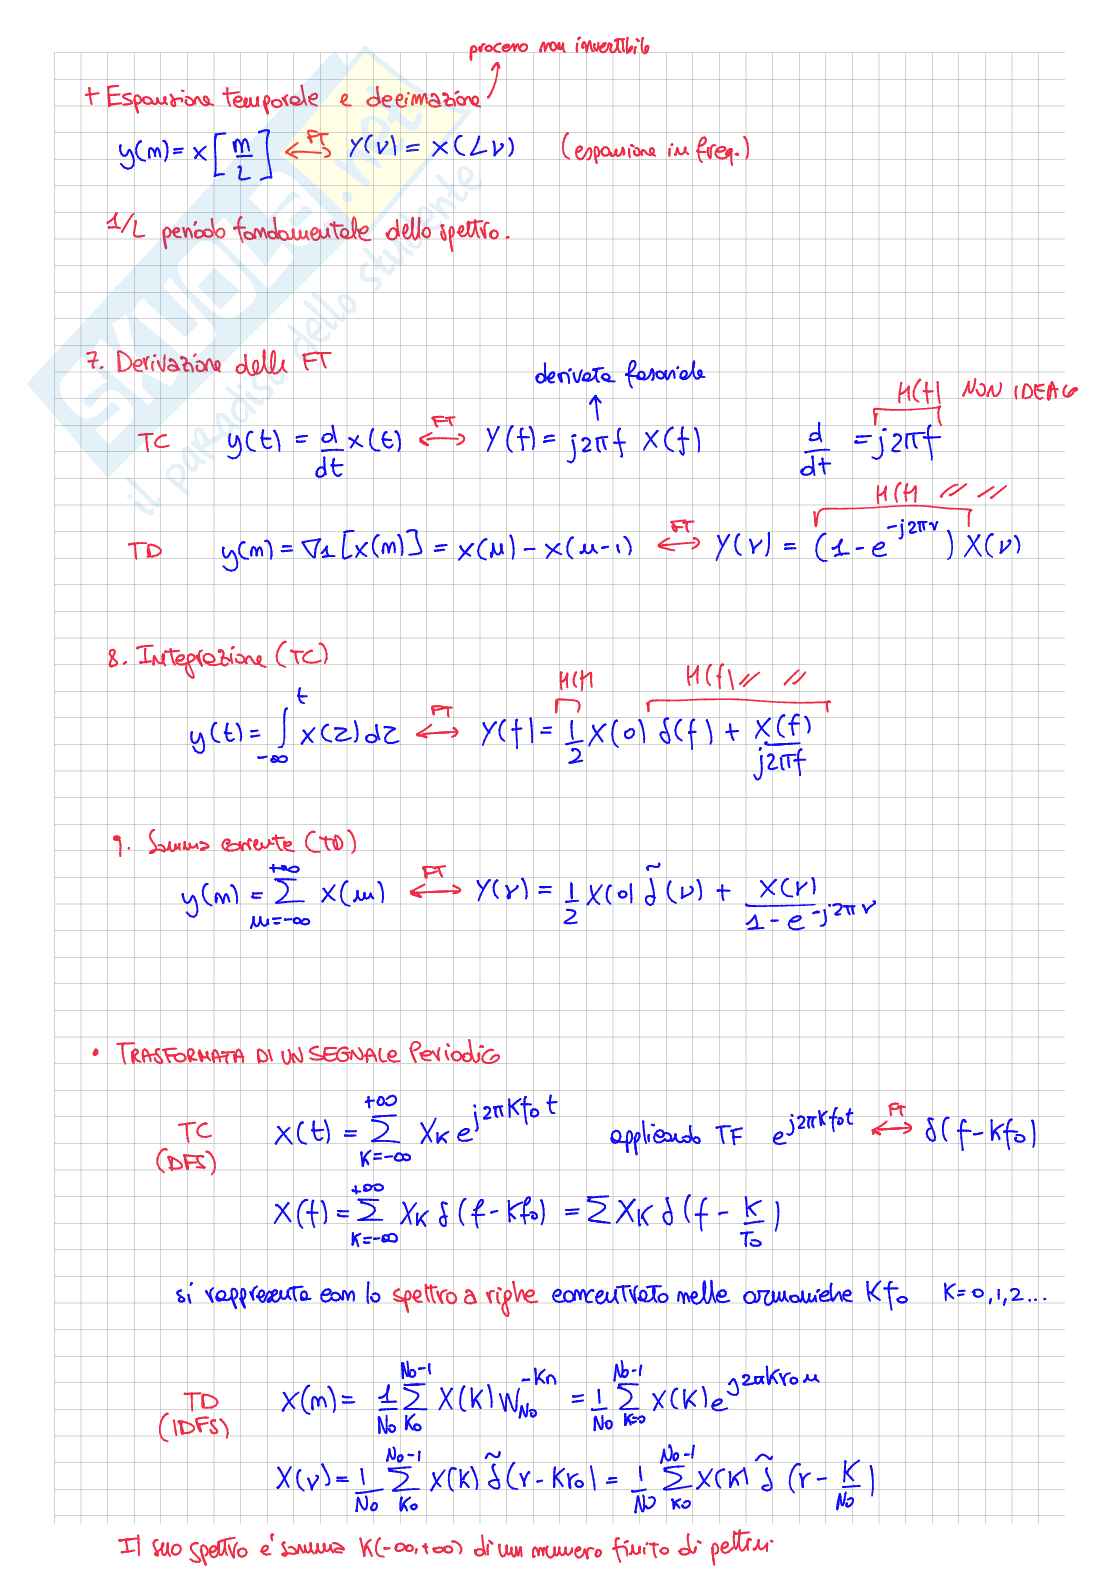 processo non invertibile
+ Espansione temporale e decimazione
y(n) = x[n/L] ⟷FT Y(ν) = X(Lν) (espansione in freq.)
1/L periodo fondamentale dello spettro.
7. Derivazione della FT
derivata fasoriale
H(f) NON IDEALE
TC y(t) = d/dt x(t) ⟷FT Y(f) = j2πf X(f) d/dt = j2πf
H(f) // //
TD y(n) = ∇1[x(n)] = x(n) - x(n-1) ⟷FT Y(ν) = (1 - e^-j2πν) X(ν)
8. Integrazione (TC)
H(f) H(f) // //
y(t) = ∫_-∞^t x(z)dz ⟷FT Y(f) = 1/2 X(0) δ(f) + X(f)/j2πf
9. Somma corrente (TD)
y(n) = Σ_{m=-∞}^{+∞} x(m) ⟷FT Y(ν) = 1/2 X(0) δ̃(ν) + X(ν)/(1 - e^-j2πν)
• TRASFORMATA DI UN SEGNALE Periodico
TC (DFS) x(t) = Σ_{K=-∞}^{+∞} X_K e^{j2πKf₀t} applicando TF e^{j2πKf₀t} ⟷FT δ(f-Kf₀)
X(f) = Σ_{K=-∞}^{+∞} X_K δ(f-Kf₀) = Σ X_K δ(f - K/T₀)
si rappresenta con lo spettro a righe concentrato nelle armoniche Kf₀ K=0,1,2...
TD (IDFS) x(n) = 1/N₀ Σ_{K₀}^{N₀-1} X(K) W_{N₀}^{-Kn} = 1/N₀ Σ_{K=0}^{N₀-1} X(K) e^{j2πKν₀n}
X(ν) = 1/N₀ Σ_{K₀}^{N₀-1} X(K) δ̃(ν-Kν₀) = 1/N₀ Σ_{K₀}^{N₀-1} X(K) δ̃(ν - K/N₀)
Il suo spettro è somma K(-∞,+∞) di un numero finito di pettini
SKUOLA.net
il paradiso dello studente